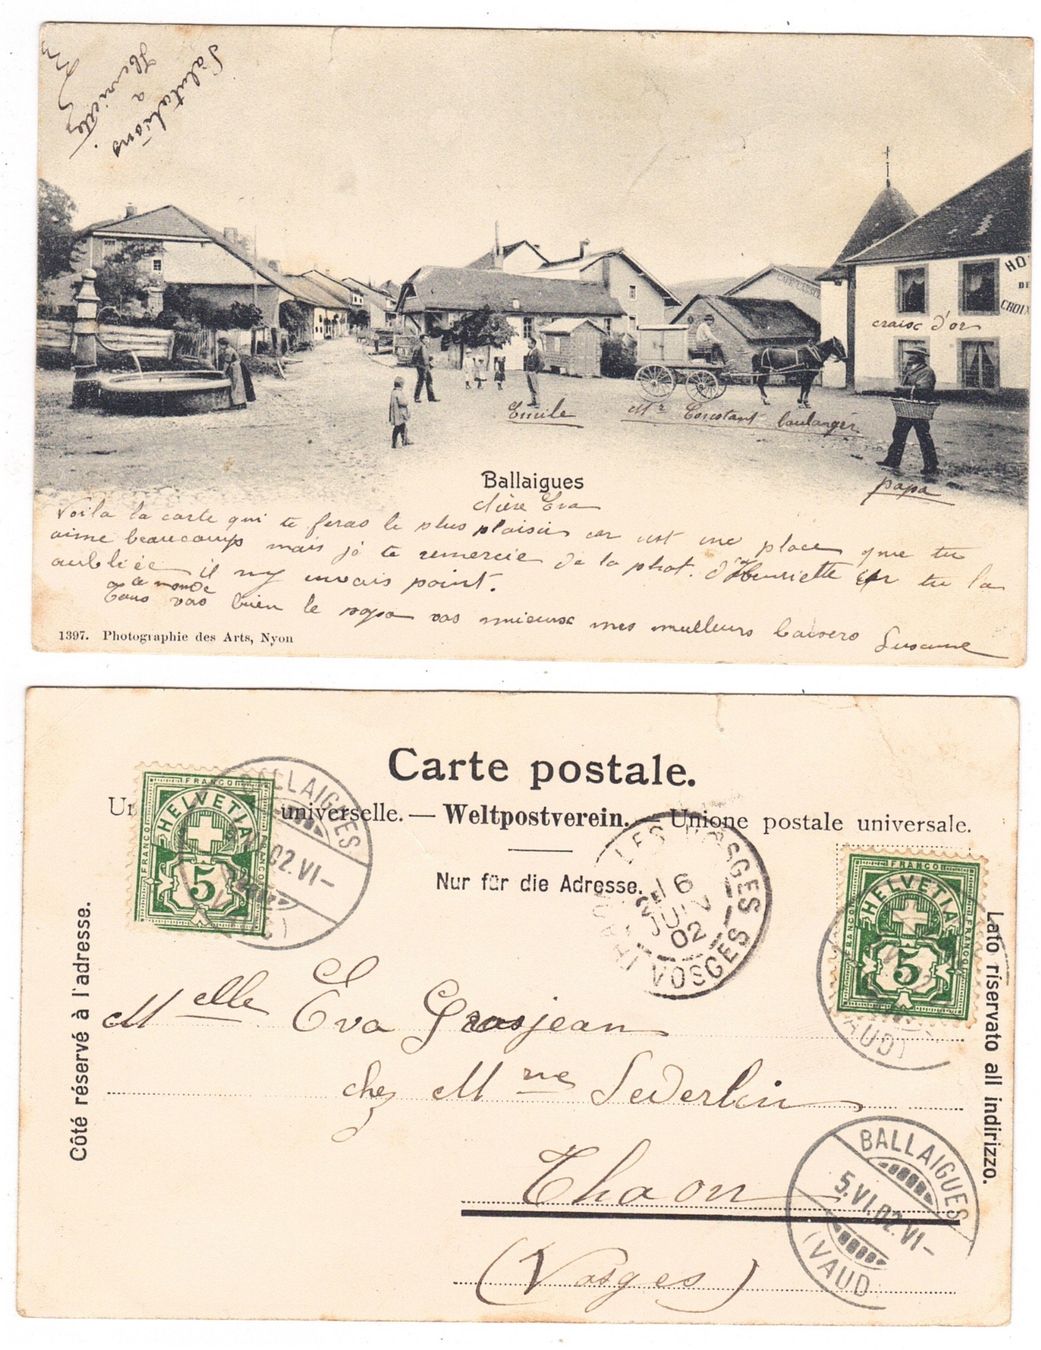 Salutations
a
Henriette
HO
DE
CHOIX
craisc d'or
Emile
Mr Constant boulanger
papa
Ballaigues
chère Eva
Voila la carte qui te feras le plus plaisir car est une place que tu
aime beaucoup mais je te remercie de la phot. d'Henriette tu la
aubliée il ny avais point.
as ce monde
Tous vas bien le papa vas mieux mes meilleurs baisers Susanne
1397. Photographie des Arts, Nyon
Carte postale.
universelle. — Weltpostverein. — Unione postale universale.
Nur für die Adresse.
Côté réservé à l'adresse.
Lato riservato all indirizzo.
FRANCO
HELVETIA
5
FRANCO
FRANCO
BALLAIGUES
02.VI-
LES VOSGES
16
JUIN
02
VOSGES
FRANCO
HELVETIA
5
FRANCO
FRANCO
VAUD)
Melle Eva Grosjean
chez Mme Sederlin
Thaon
(Vosges)
BALLAIGUES
5.VI.02.VI-
(VAUD